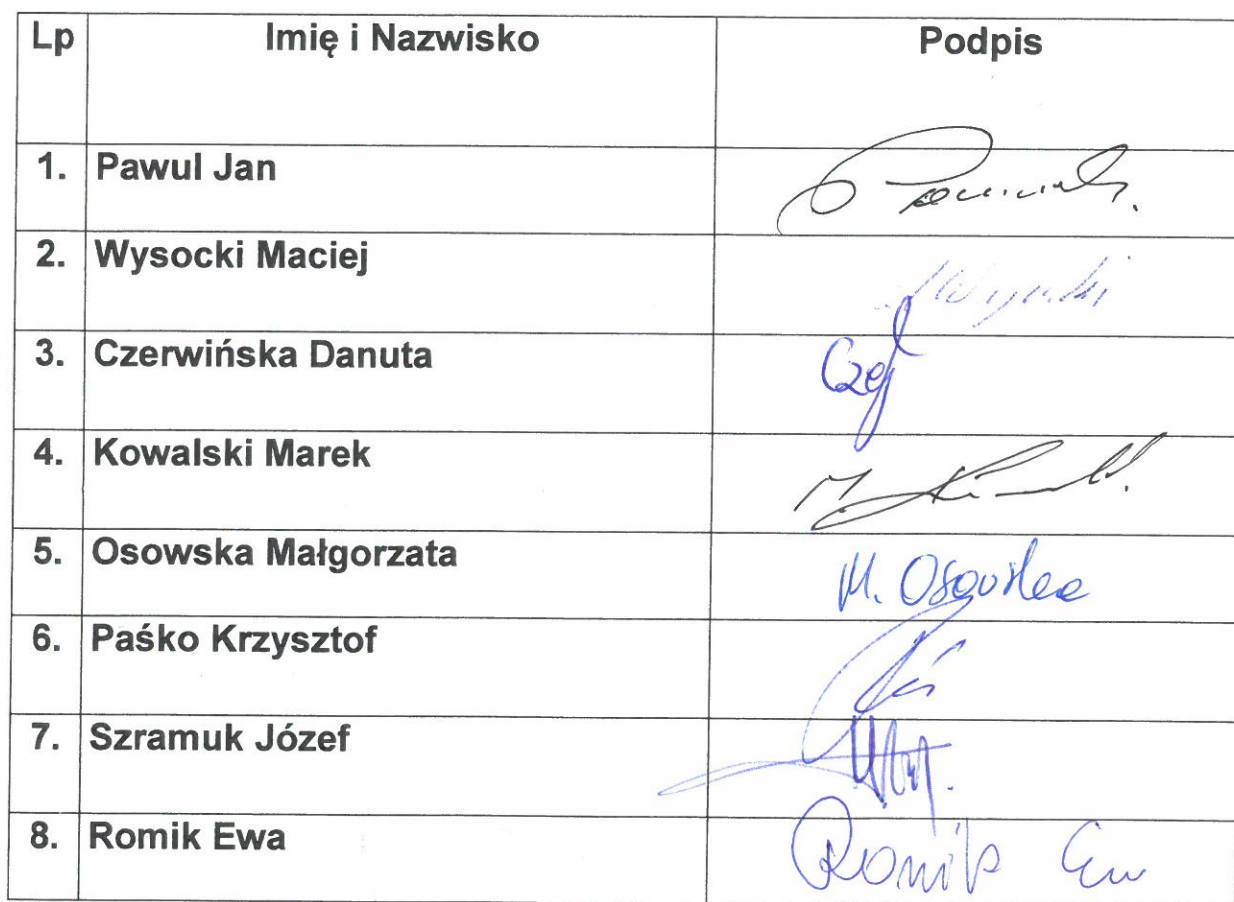 Lp Imię i Nazwisko Podpis
1. Pawul Jan
2. Wysocki Maciej
3. Czerwińska Danuta
4. Kowalski Marek
5. Osowska Małgorzata M. Osowska
6. Paśko Krzysztof
7. Szramuk Józef
8. Romik Ewa Romik Ewa